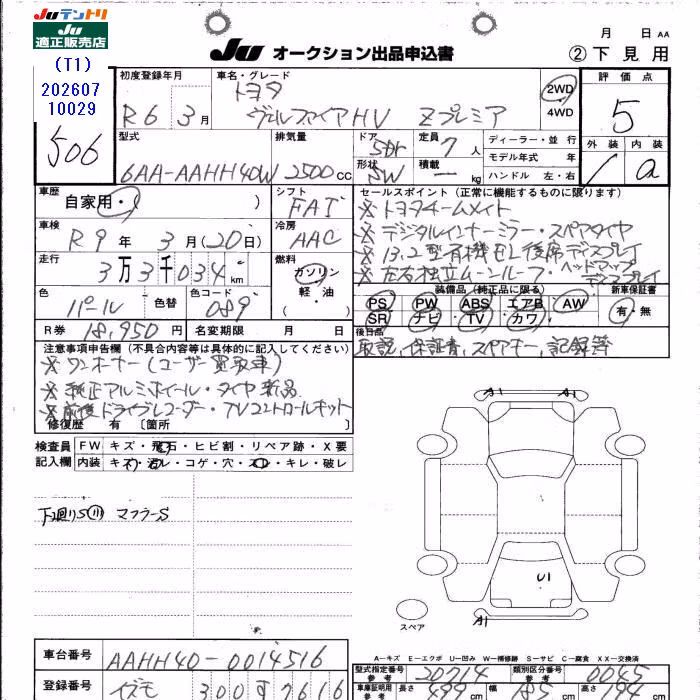 Juテントリ
Ju
適正販売店
(T1)
202607
10029
506
Ju オークション出品申込書
月 日 AA
② 下見用
初度登録年月
R6年 3月
車名・グレード
トヨタ
ヴェルファイアHV Zプレミア
2WD
4WD
評価点
5
外装 内装
a
型式
6AA-AAHH40W
排気量
2500cc
ドア
5Dr
形状
SW
定員
7人
積載
kg
ディーラー・並行
モデル年式 年
ハンドル 左・右
車歴
自家用・( )
シフト
FAT
車検
R9年 3月(20日)
冷房
AAC
走行
3万3千034km
燃料
ガソリン
軽・油
( )
色
パール
色替
色コード
089
R券 18,950円
名変期限 月 日
セールスポイント(正常に機能するものに限ります)
※トヨタチームメイト
※デジタルインナーミラー・スペアタイヤ
※13.2型有機EL後席ディスプレイ
※左右独立ムーンルーフ・ヘッドアップディスプレイ
装備品(純正品に限る)
新車保証書
PS PW ABS エアB AW
SR ナビ TV カワ
有・無
後日品
取説、保証書、スペアキー、記録簿
注意事項申告欄(不具合内容等は具体的に記入してください)
※ワンオーナー(ユーザー買取車)
※純正アルミホイール・タイヤ新品
※前後ドライブレコーダー・TVコントロールキット
修復歴 有 〔箇所 〕
検査員
記入欄
FW キズ・飛石・ヒビ割・リペア跡・X要
内装 キズ・汚レ・コゲ・穴・スレ・キレ・破レ
下廻りS マフラーS
A1 A1
U1
A1
スペア
A−キズ E−エクボ U−凹み W−補修跡 S−サビ C−腐食 XX−交換済
車台番号
AAHH40-0014516
登録番号
イズモ 300す7616
型式指定番号
参考
20714
類別区分番号
参考
0045
車庫証明用
参考
長さ 499cm
幅 185cm
高さ
cm